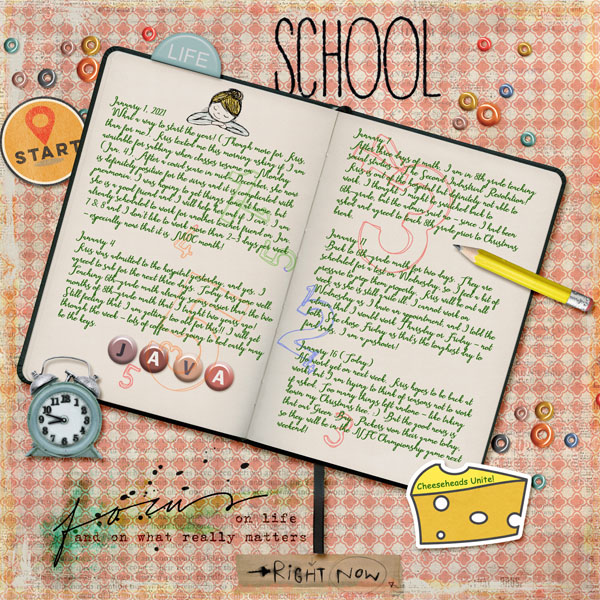 SCHOOL
LIFE
START
January 1, 2021
What a way to start the year! (Though more for Kris
than for me.) Kris texted me this morning asking if I am
available for subbing when classes resume Monday
(Jan. 4). After a covid
is definitely positive for the virus and it is complicated with
pneumonia. I was hoping to get things done, but
She is a good friend and I will help if I can. I am
already scheduled to work for another teacher friend on Jan.
7 & 8 and I don't like to work more than 2-3 days per week
- especially now that it is JMOC month!
January 4
Kris was admitted to the hospital yesterday, and yes, I
agreed to sub for the next three days. Today has gone well.
Teaching 6th grade math
months of 8th grade math that I taught two years ago,
I still feeling that I am getting too old for this!! I will get
through the week - lots of coffee and going to bed early may
be the keys.
JAVA
January
After three days of math, I am in 8th grade teaching
social studies
Kris is out of the hospital but definitely not able to
work. I thought I might be subbed back to
6th grade, but the other sub
asked and agreed to back 8th grade prior to Christmas
break.
January 11
Back to 6th grade math for two days. They are
scheduled for a test on Wednesday, so I feel a bit of
pressure to help them prepare. Kris will be out all
week as she is still quite ill. I cannot work on
Wednesday as I have an appointment, and I told the
that I would work Thursday or Friday - not
both. She chose Friday as that's the toughest day to
find subs. I am a pushover!
January 16 (Today)
yet on next week. Kris hopes to be back at
work. I am trying to think of reasons not to work
if asked. Too many things left undone - like taking
down my Christmas tree. :) But the good news is
that our Green Bay Packers won their game today,
so they will be in the NFC Championship game next
weekend!
Cheeseheads Unite!
focus
on life
and on what really matters
RIGHT NOW